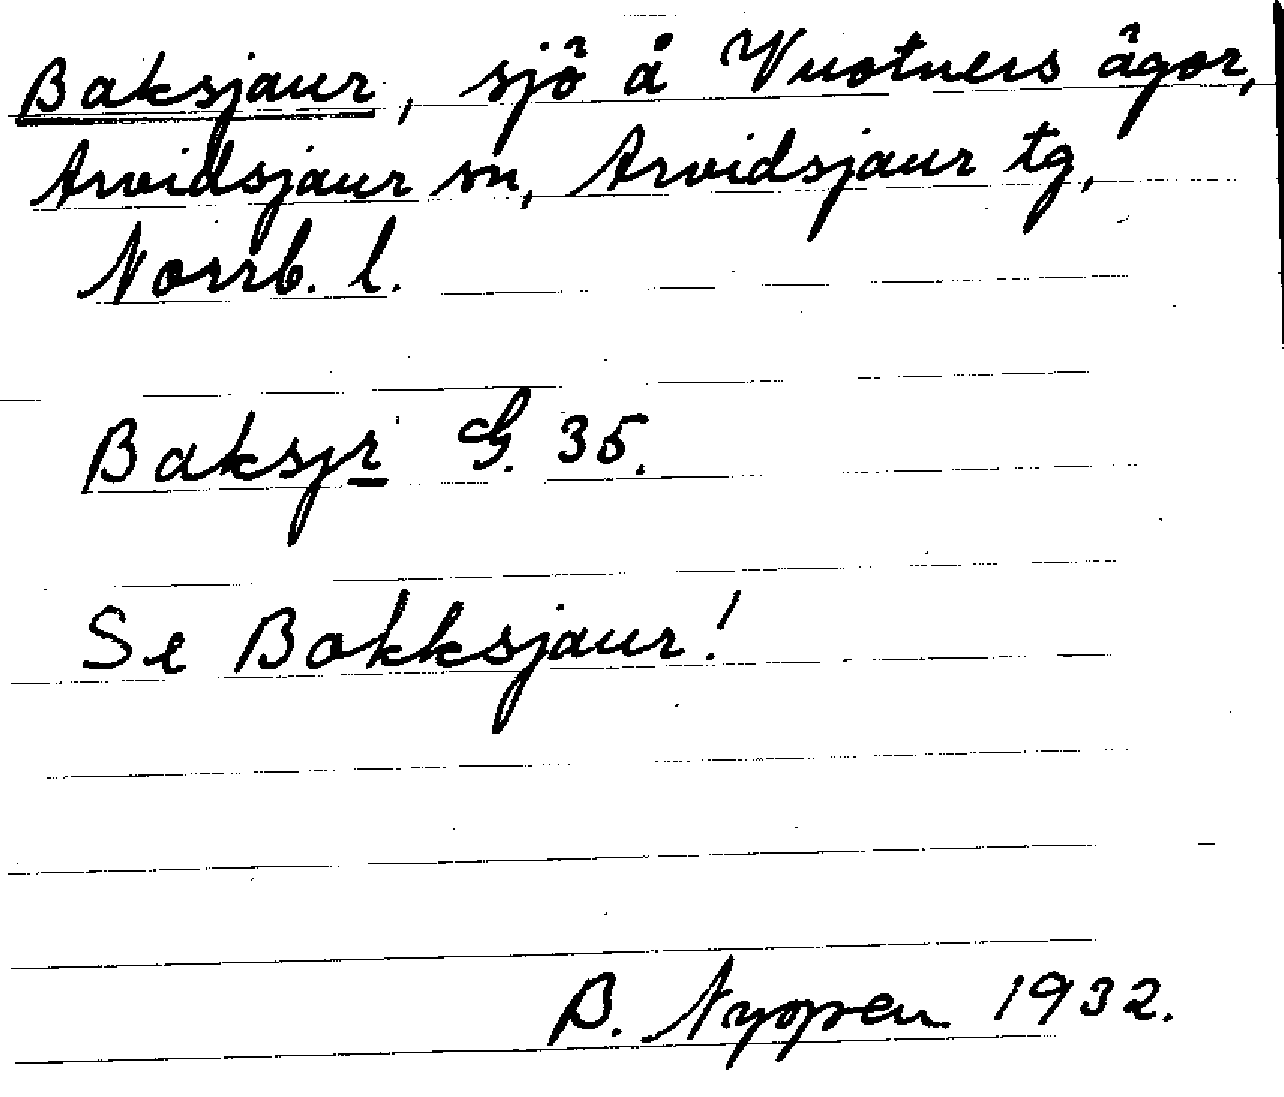 Baksjaur, sjö å Vuotners ägor,
Arvidsjaur sn, Arvidsjaur tg,
Norrb. l.
Baksjr G. 35.
Se Bakksjaur!
B. Nyopen 1932.